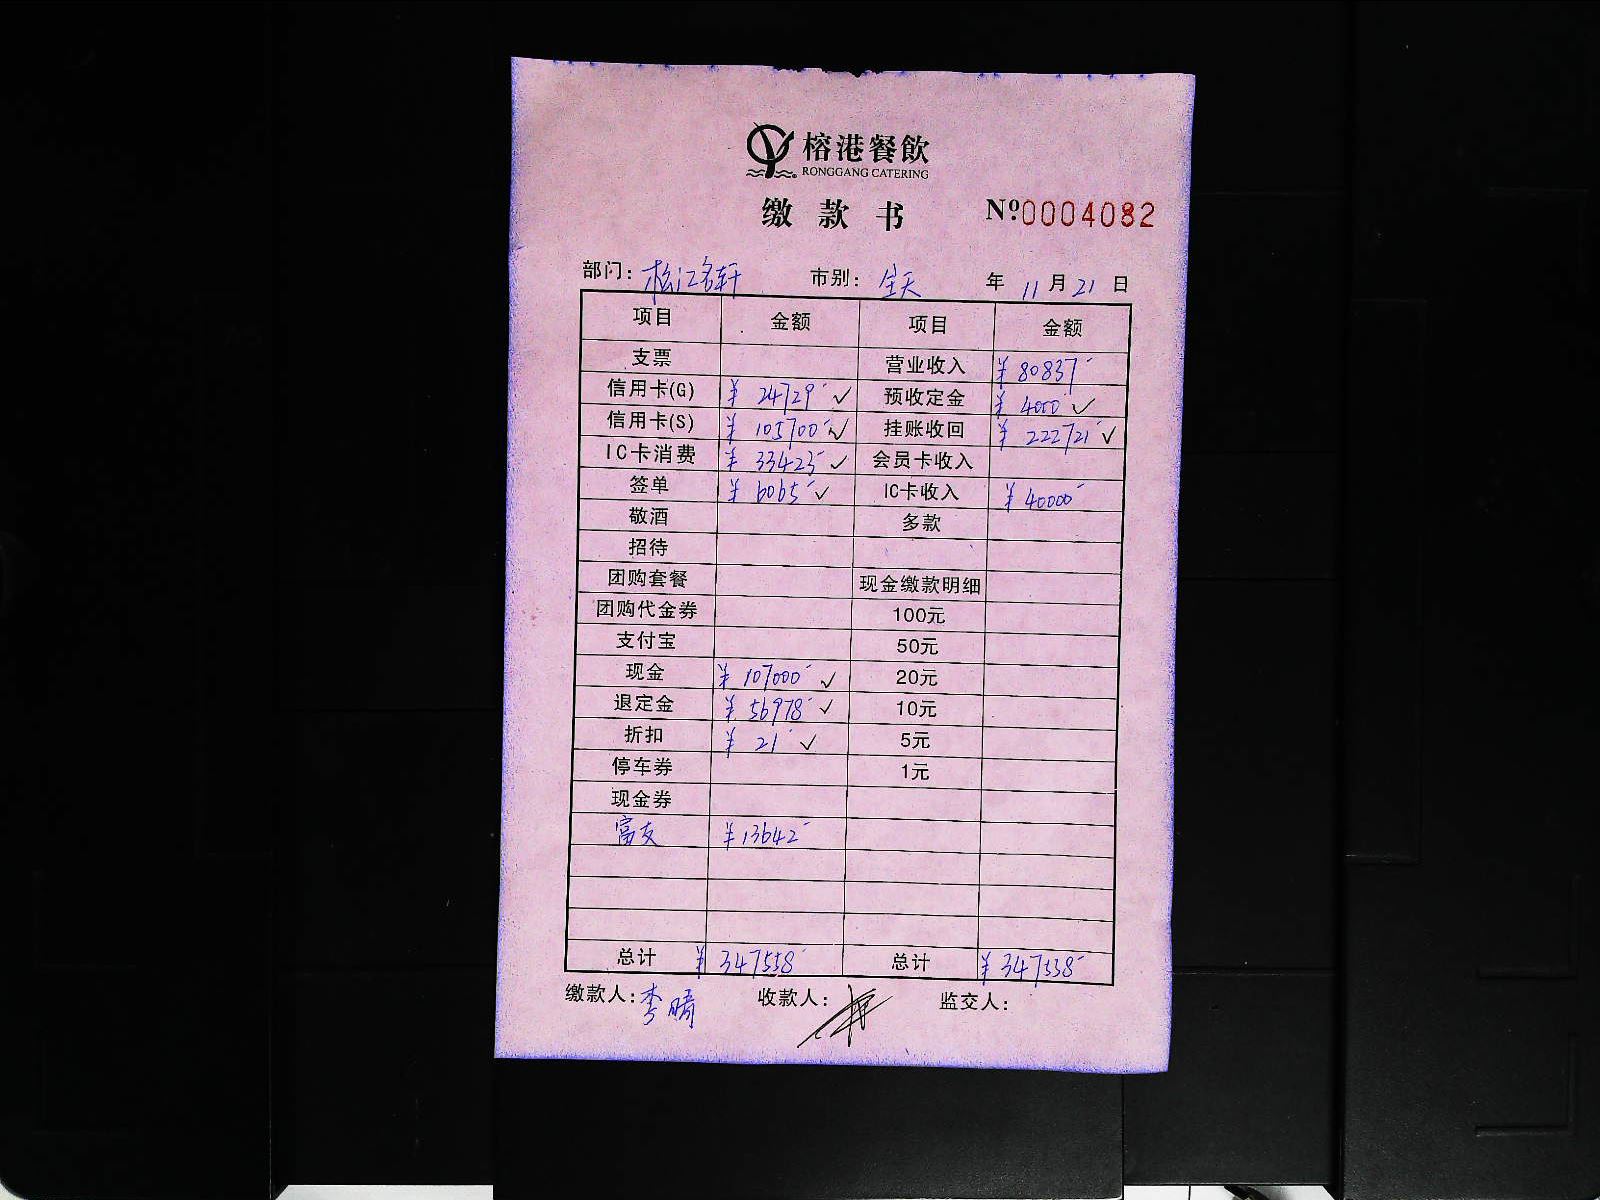 榕港餐飲
RONGGANG CATERING
缴款书 Nº0004082
部门：松江名轩 市别：全天 年 11 月 21 日
项目 金额 项目 金额
支票 营业收入 ¥80837-
信用卡(G) ¥24729-✓ 预收定金 ¥4000-✓
信用卡(S) ¥105700-✓ 挂账收回 ¥222721-✓
IC卡消费 ¥33423-✓ 会员卡收入
签单 ¥6065-✓ IC卡收入 ¥40000-
敬酒 多款
招待
团购套餐 现金缴款明细
团购代金券 100元
支付宝 50元
现金 ¥107000-✓ 20元
退定金 ¥56978-✓ 10元
折扣 ¥21-✓ 5元
停车券 1元
现金券
富友 ¥13642-
总计 ¥347558- 总计 ¥347558-
缴款人：李晴 收款人： 监交人：